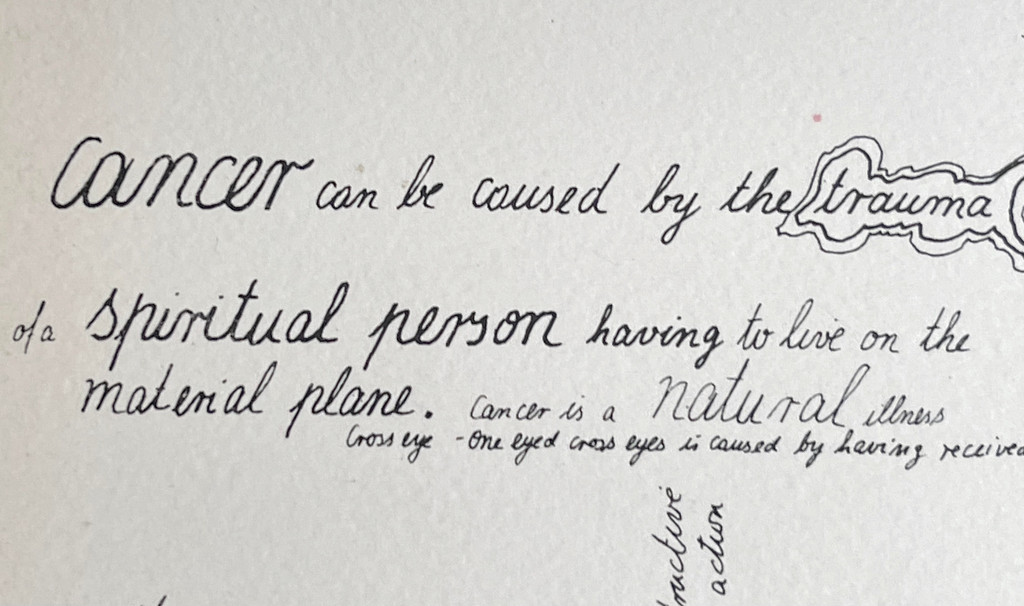 Cancer can be caused by the trauma
of a spiritual person having to live on the
material plane. Cancer is a natural illness
Cross eye - One eyed cross eyes is caused by having received
action